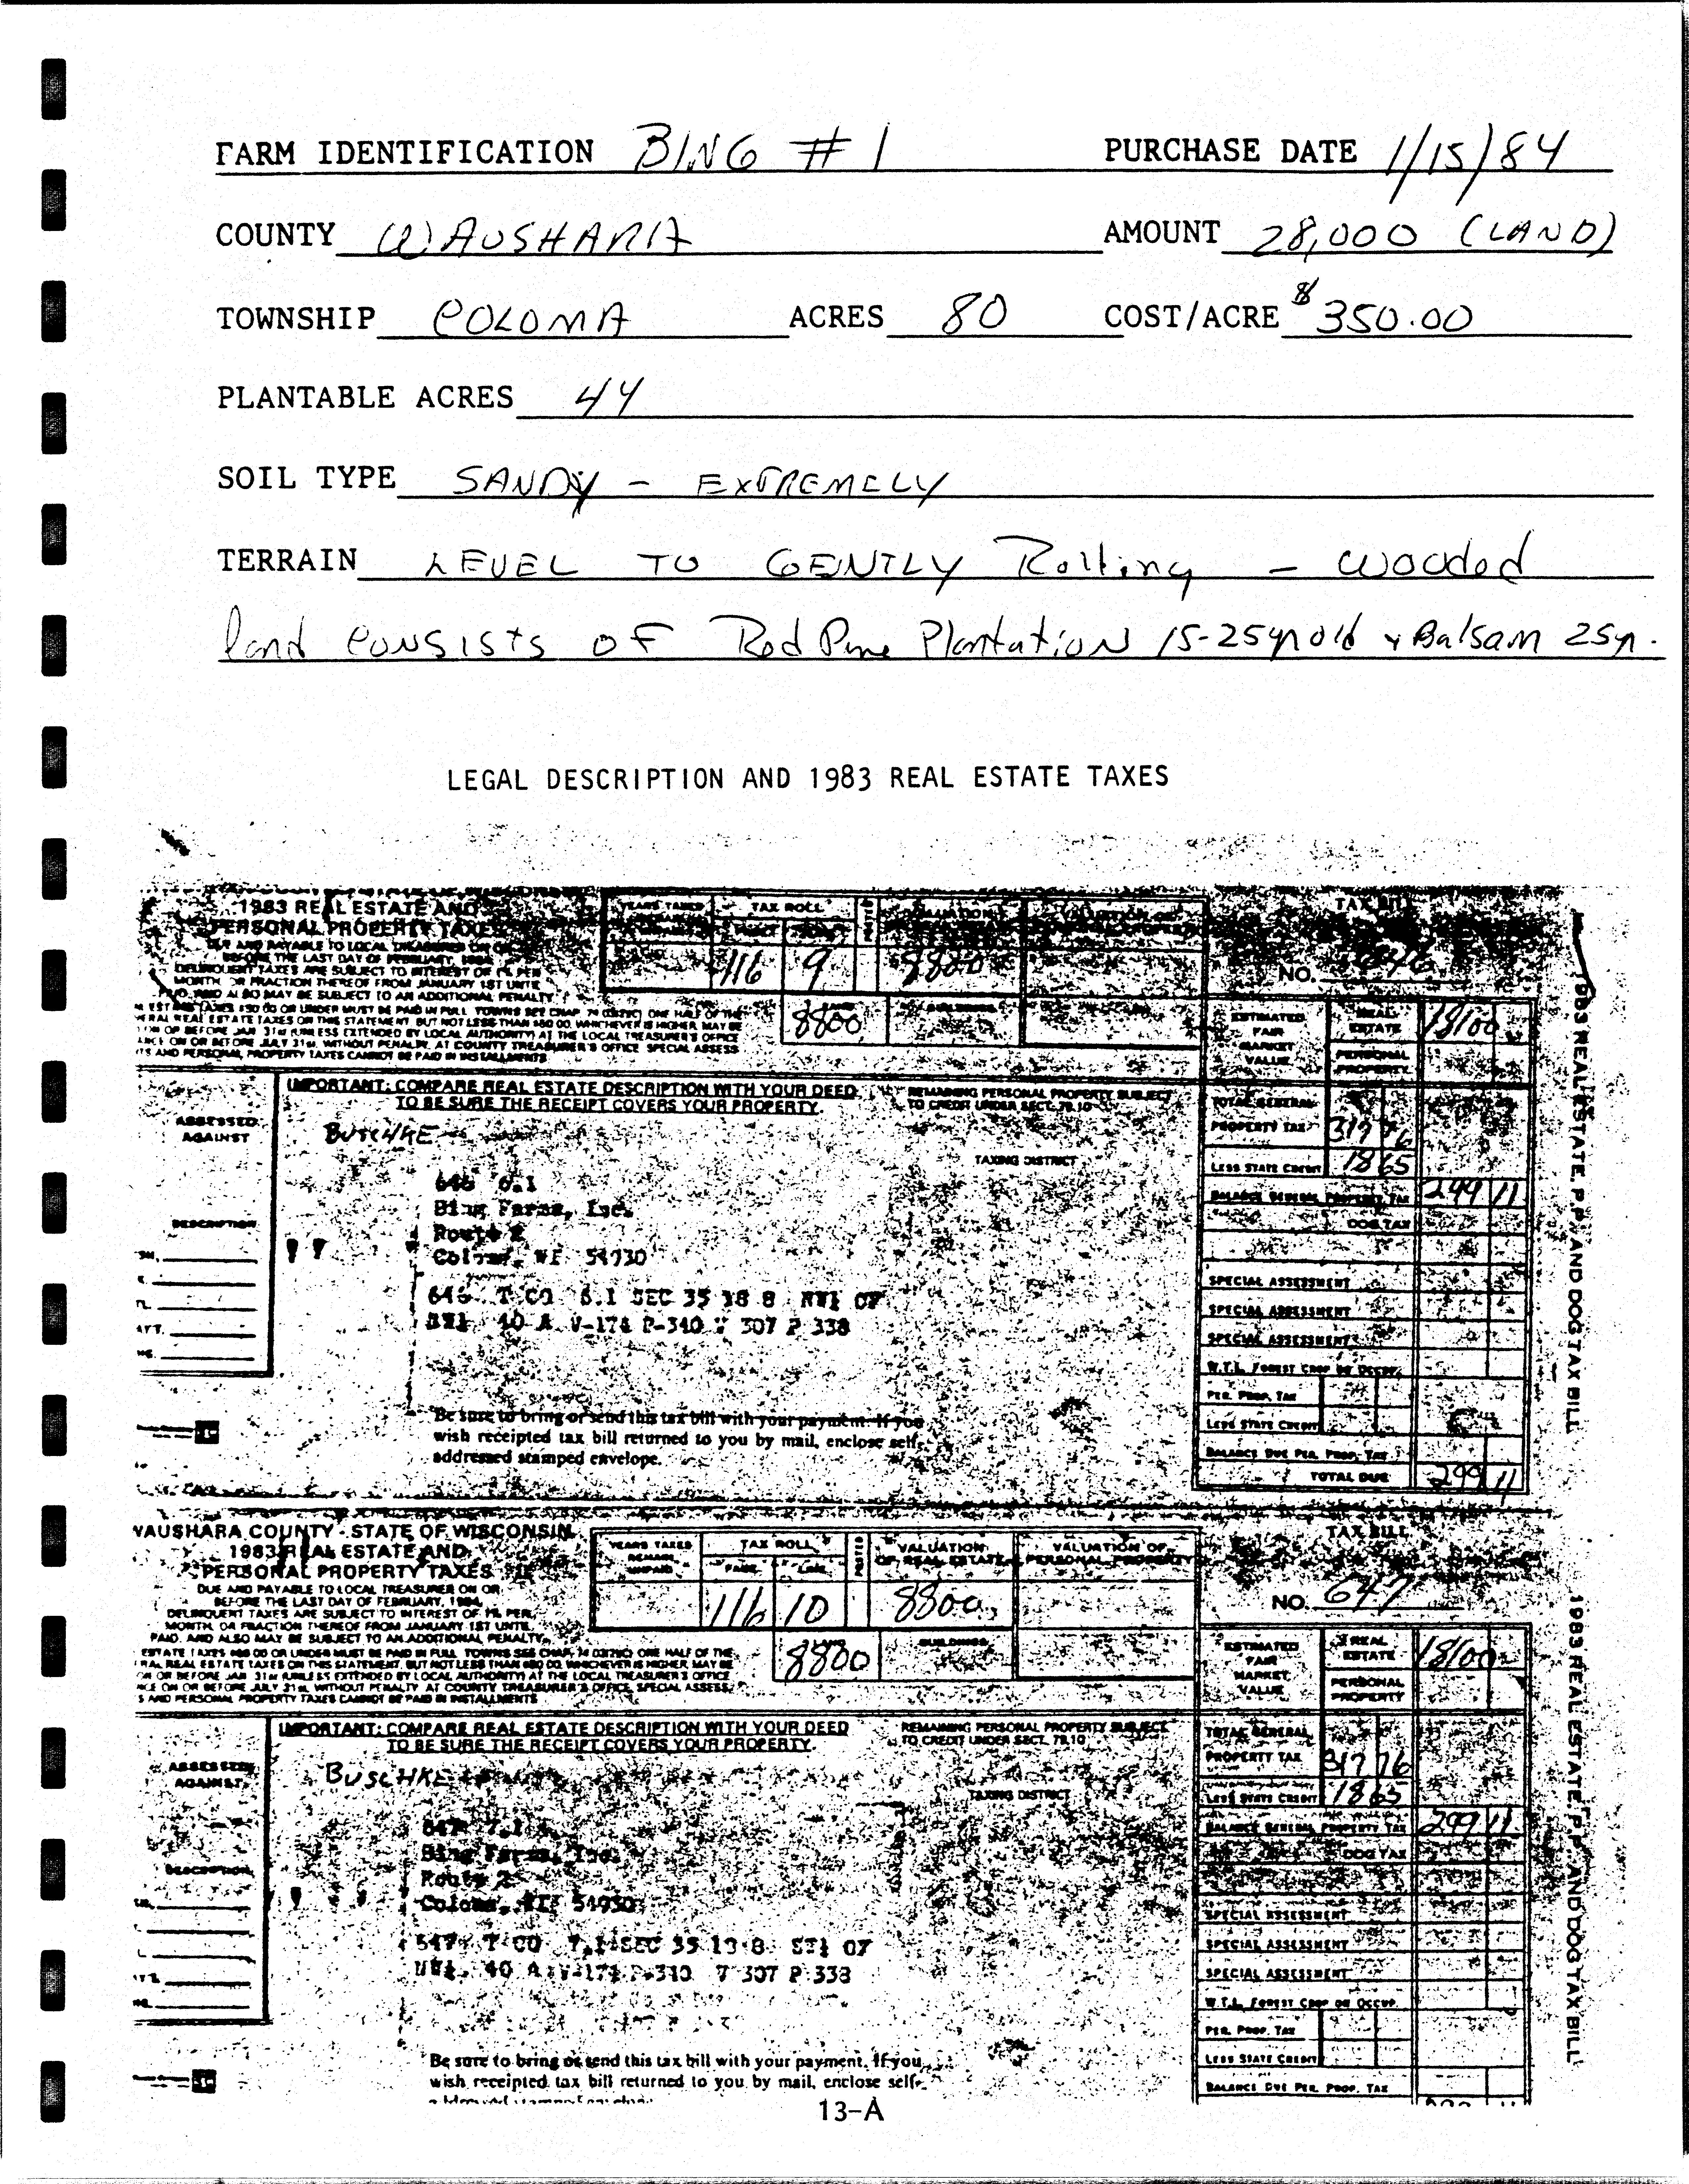 FARM IDENTIFICATION BING # 1 PURCHASE DATE 1/15/84
COUNTY WAUSHARA AMOUNT 28,000 (LAND)
TOWNSHIP COLOMA ACRES 80 COST/ACRE $350.00
PLANTABLE ACRES 44
SOIL TYPE SANDY - EXTREMELY
TERRAIN LEVEL TO GENTLY Rolling - wooded
land CONSISTS OF Red Pine Plantation 15-25yr old + Balsam 25yr.
LEGAL DESCRIPTION AND 1983 REAL ESTATE TAXES
1983 REAL ESTATE AND
PERSONAL PROPERTY TAXES
DUE AND PAYABLE TO LOCAL TREASURER ON OR
BEFORE THE LAST DAY OF FEBRUARY, 1984
DELINQUENT TAXES ARE SUBJECT TO INTEREST OF 1% PER
MONTH OR FRACTION THEREOF FROM JANUARY 1ST UNTIL
PAID, AND ALSO MAY BE SUBJECT TO AN ADDITIONAL PENALTY
YEARS TAXES
TAX ROLL
116 9 8800
8800
TAX BILL
NO.
ESTIMATED FAIR MARKET VALUE
REAL ESTATE 18100
PERSONAL PROPERTY
IMPORTANT: COMPARE REAL ESTATE DESCRIPTION WITH YOUR DEED
TO BE SURE THE RECEIPT COVERS YOUR PROPERTY.
REMAINING PERSONAL PROPERTY SUBJECT
TO CREDIT UNDER SECT. 79.10
ASSESSED AGAINST
BUSCHKE
TAXING DISTRICT
646 6.1
Bing Farms, Inc.
Route 2
Coloma, WI 54930
DESCRIPTION
646 T CO 6.1 SEC 35 18 8
40 A V-174 P-340 V 307 P 338
Be sure to bring or send this tax bill with your payment. If you
wish receipted tax bill returned to you by mail, enclose self-
addressed stamped envelope.
TOTAL GENERAL
PROPERTY TAX 317 76
LESS STATE CREDIT 18 65
BALANCE GENERAL PROPERTY TAX 299 11
DOG TAX
SPECIAL ASSESSMENT
SPECIAL ASSESSMENT
SPECIAL ASSESSMENT
W.T.L. FOREST CROP OR OCCUP.
PER. PROP. TAX
LESS STATE CREDIT
BALANCE DUE PER. PROP. TAX
TOTAL DUE 299 11
1983 REAL ESTATE, P.P. AND DOG TAX BILL
WAUSHARA COUNTY - STATE OF WISCONSIN
1983 REAL ESTATE AND
PERSONAL PROPERTY TAXES
DUE AND PAYABLE TO LOCAL TREASURER ON OR
BEFORE THE LAST DAY OF FEBRUARY, 1984
DELINQUENT TAXES ARE SUBJECT TO INTEREST OF 1% PER
MONTH OR FRACTION THEREOF FROM JANUARY 1ST UNTIL
PAID, AND ALSO MAY BE SUBJECT TO AN ADDITIONAL PENALTY
YEARS TAXES REMAIN UNPAID
TAX ROLL
PAGE LINE
POSTED
VALUATION OF REAL ESTATE
VALUATION OF PERSONAL PROPERTY
116 10 8800
8800
BUILDINGS
TAX BILL
NO. 647
ESTIMATED FAIR MARKET VALUE
REAL ESTATE 18100
PERSONAL PROPERTY
IMPORTANT: COMPARE REAL ESTATE DESCRIPTION WITH YOUR DEED
TO BE SURE THE RECEIPT COVERS YOUR PROPERTY.
REMAINING PERSONAL PROPERTY SUBJECT
TO CREDIT UNDER SECT. 79.10
ASSESSED AGAINST
BUSCHKE
TAXING DISTRICT
647 7.1
Bing Farms, Inc.
Route 2
Coloma, WI 54930
DESCRIPTION
647 T CO 7.1 SEC 35 18 8
40 A V-174 P-340 V 307 P 338
Be sure to bring or send this tax bill with your payment. If you
wish receipted tax bill returned to you by mail, enclose self-
TOTAL GENERAL
PROPERTY TAX 317 76
LESS STATE CREDIT 18 65
BALANCE GENERAL PROPERTY TAX 299 11
DOG TAX
SPECIAL ASSESSMENT
SPECIAL ASSESSMENT
SPECIAL ASSESSMENT
W.T.L. FOREST CROP OR OCCUP.
PER. PROP. TAX
LESS STATE CREDIT
BALANCE DUE PER. PROP. TAX
1983 REAL ESTATE, P.P. AND DOG TAX BILL
13-A